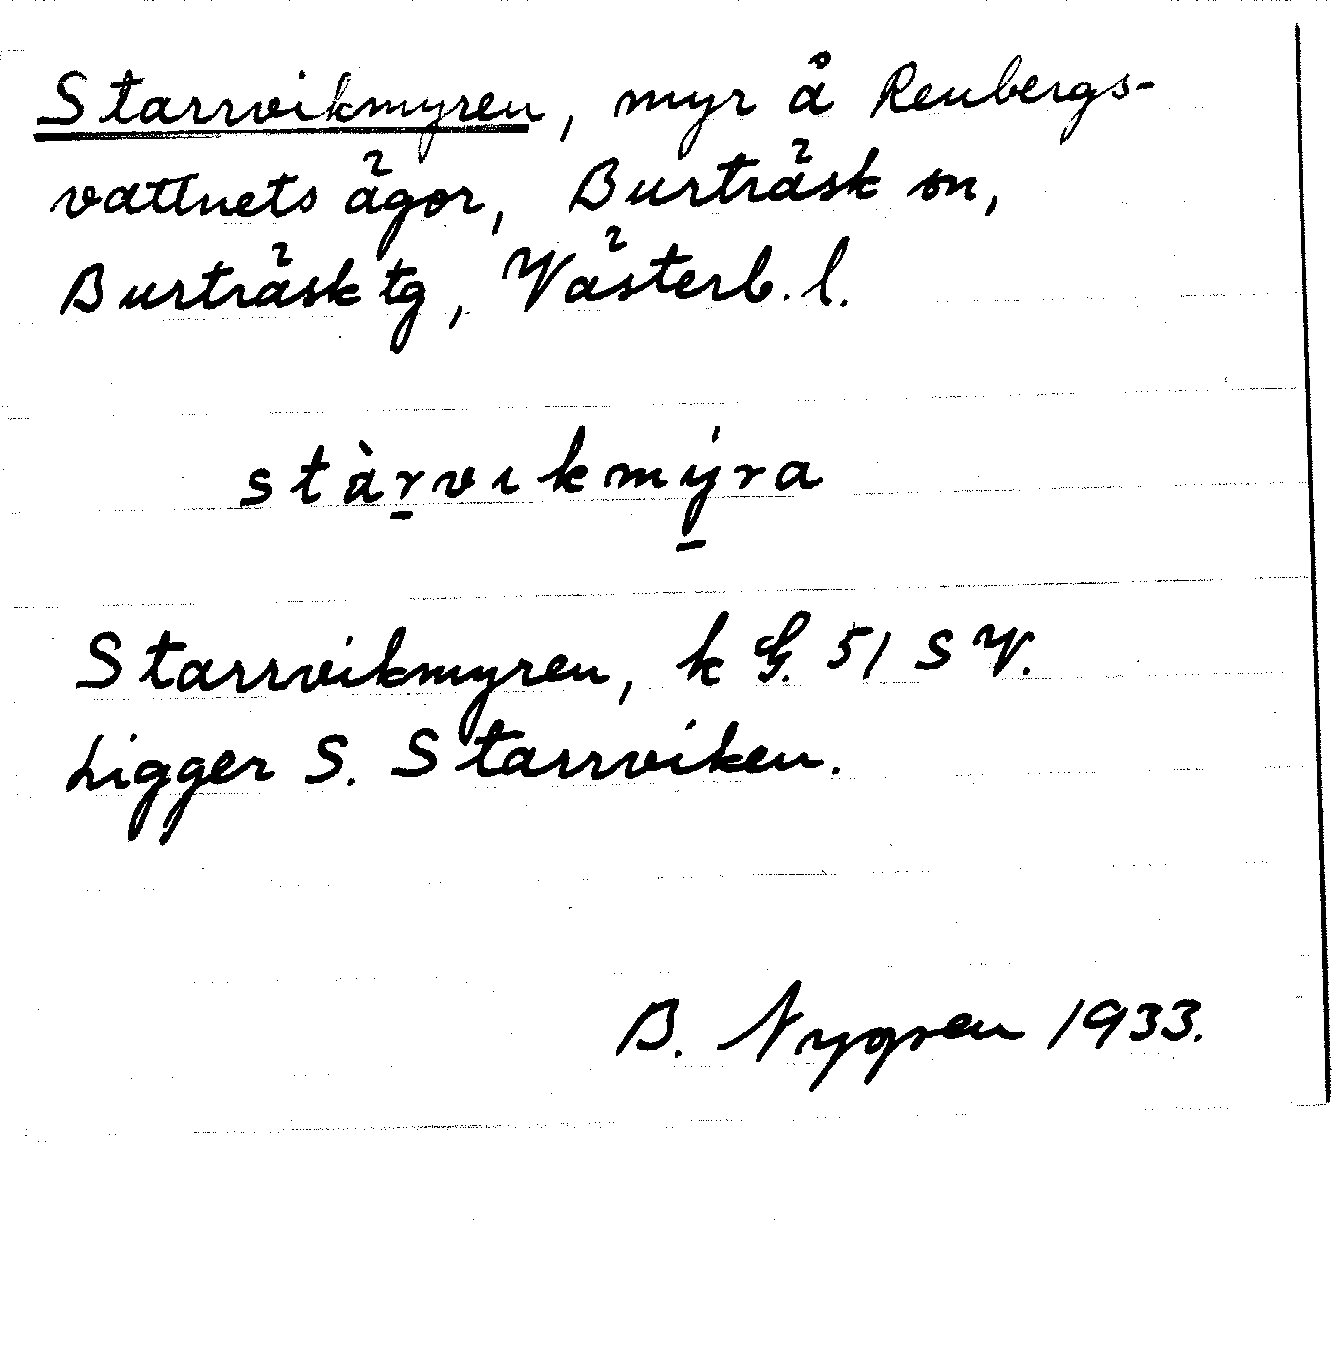 Starrvikmyren, myr å Renbergs-
vattnets ägor, Burträsk sn,
Burträsk tg, Västerb. l.
stàr̠vıkmý̠ra
Starrvikmyren, k G. 51 SV.
Ligger S. Starrviken.
B. Nygren 1933.